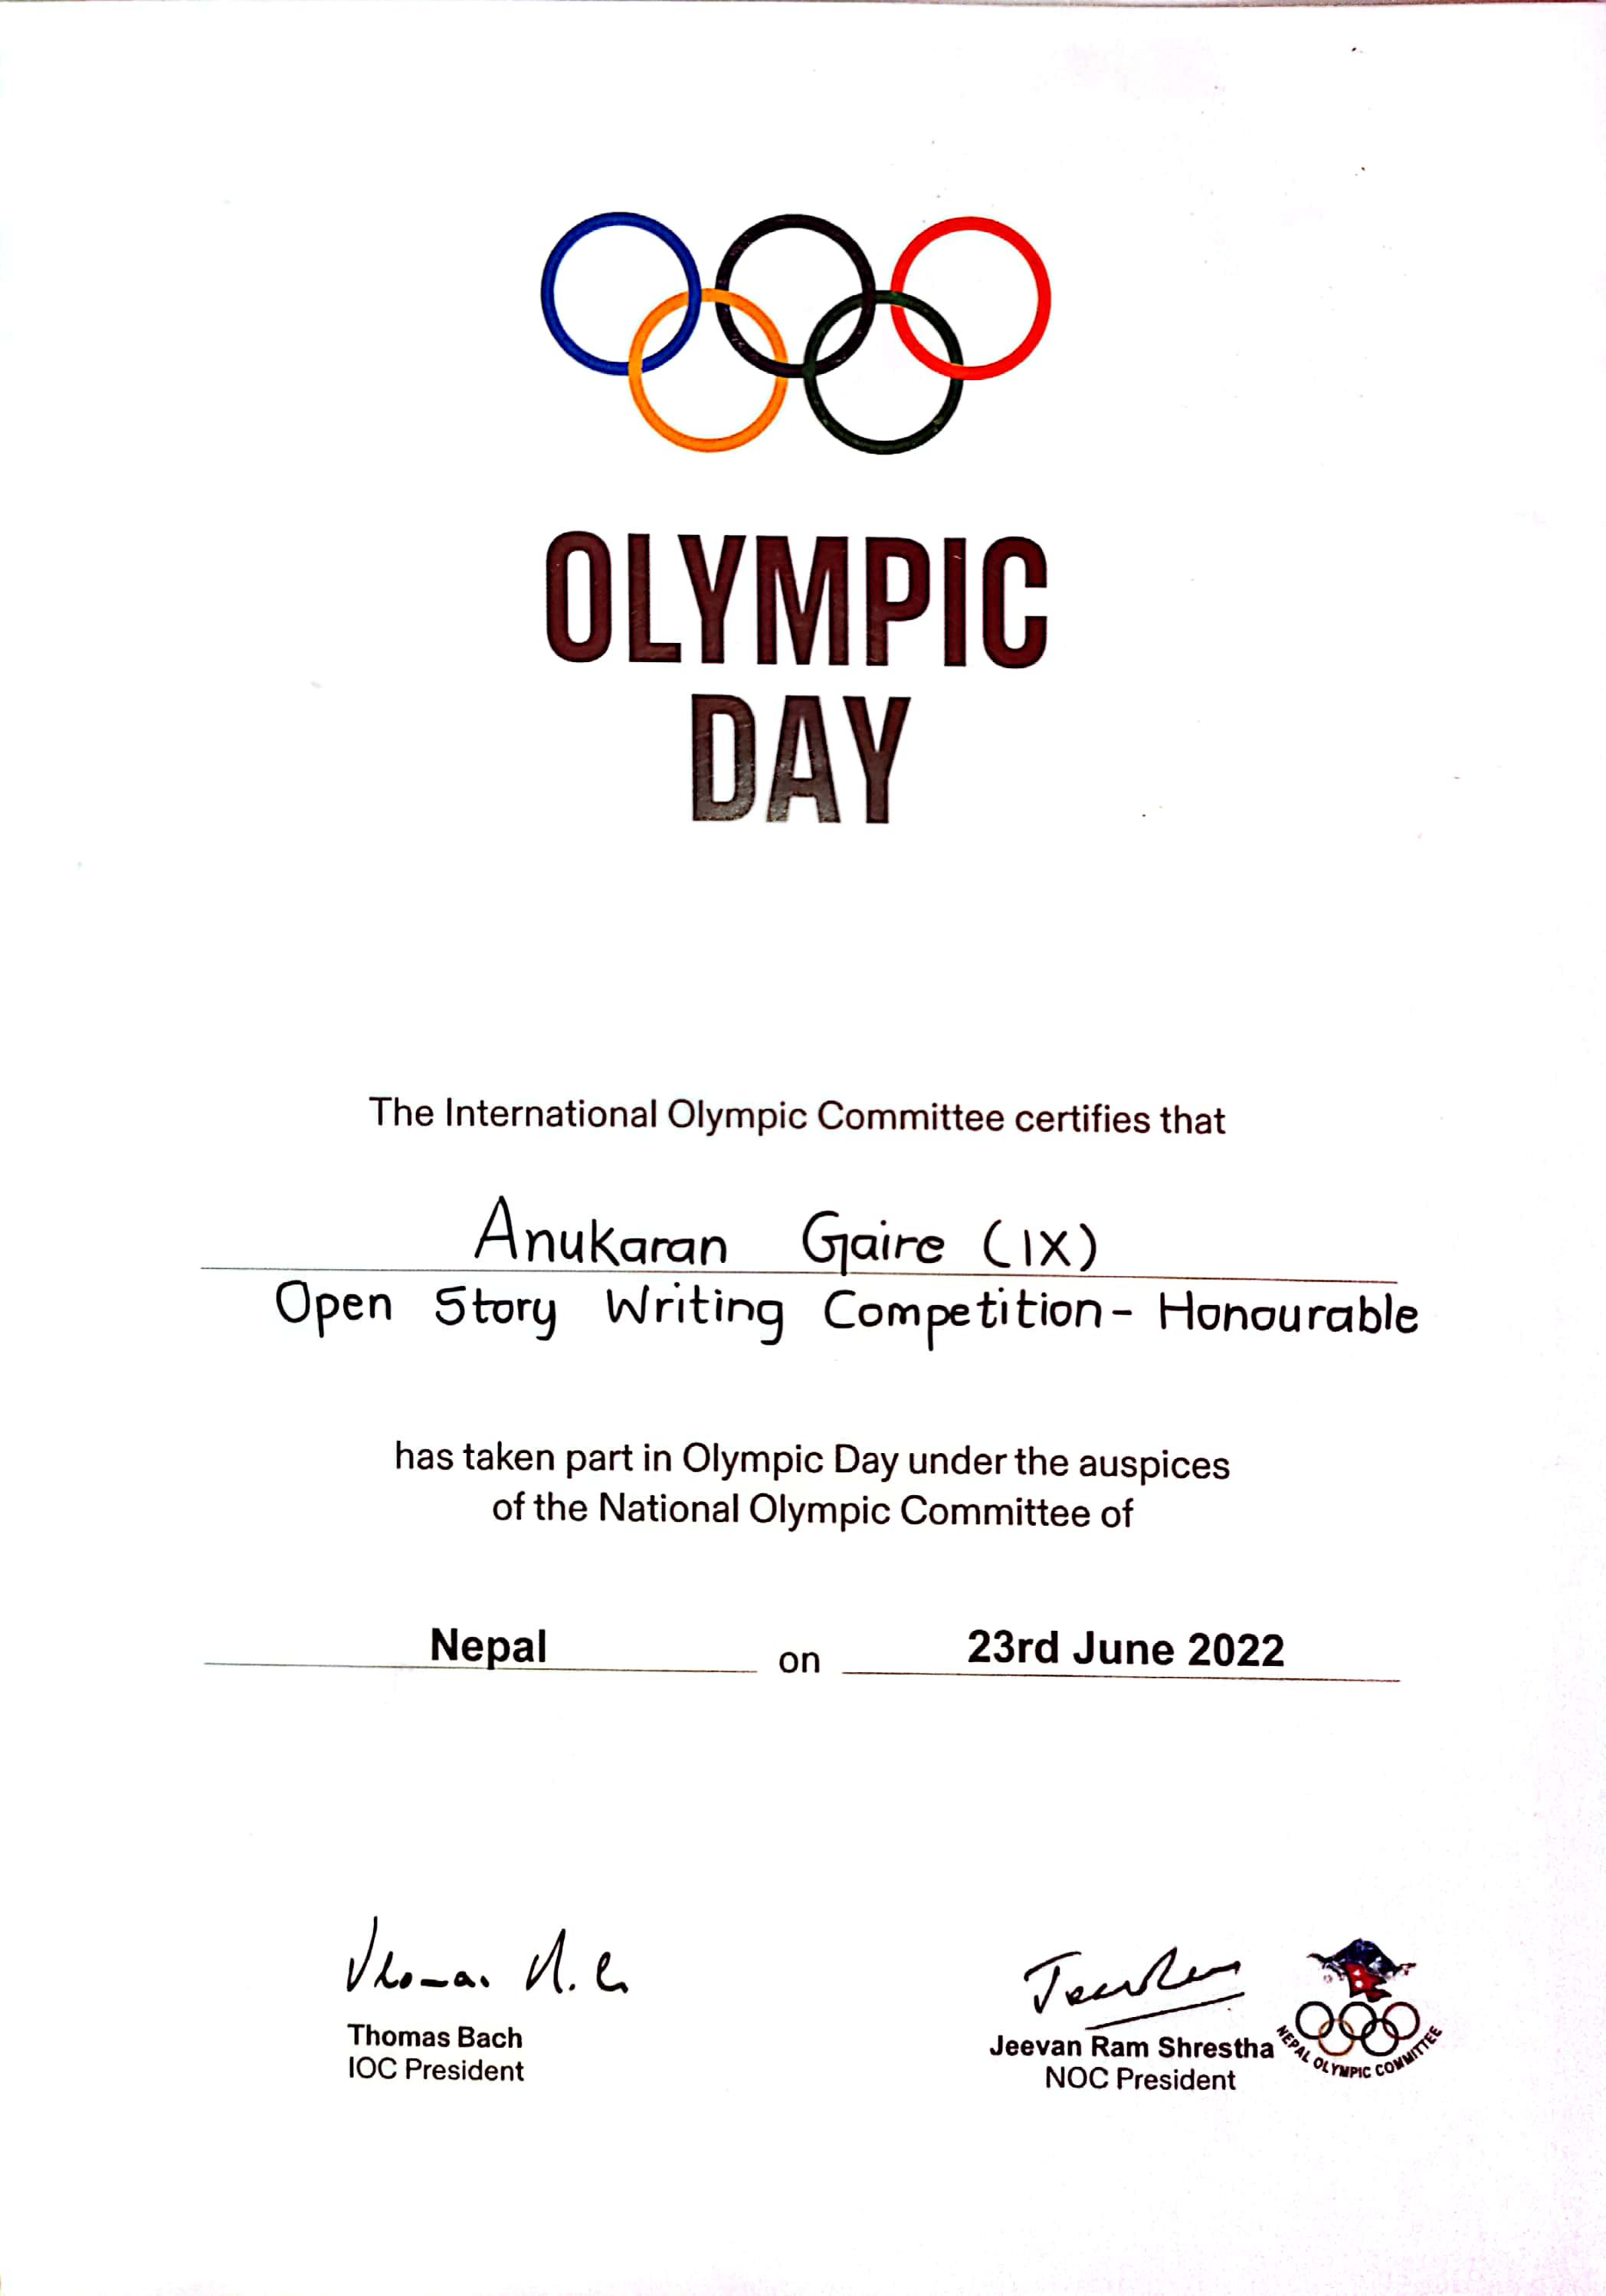 OLYMPIC
DAY
The International Olympic Committee certifies that
Anukaran Gaire (IX)
Open Story Writing Competition- Honourable
has taken part in Olympic Day under the auspices
of the National Olympic Committee of
Nepal on 23rd June 2022
Thomas Bach
IOC President
Jeevan Ram Shrestha
NOC President
NEPAL OLYMPIC COMMITTEE